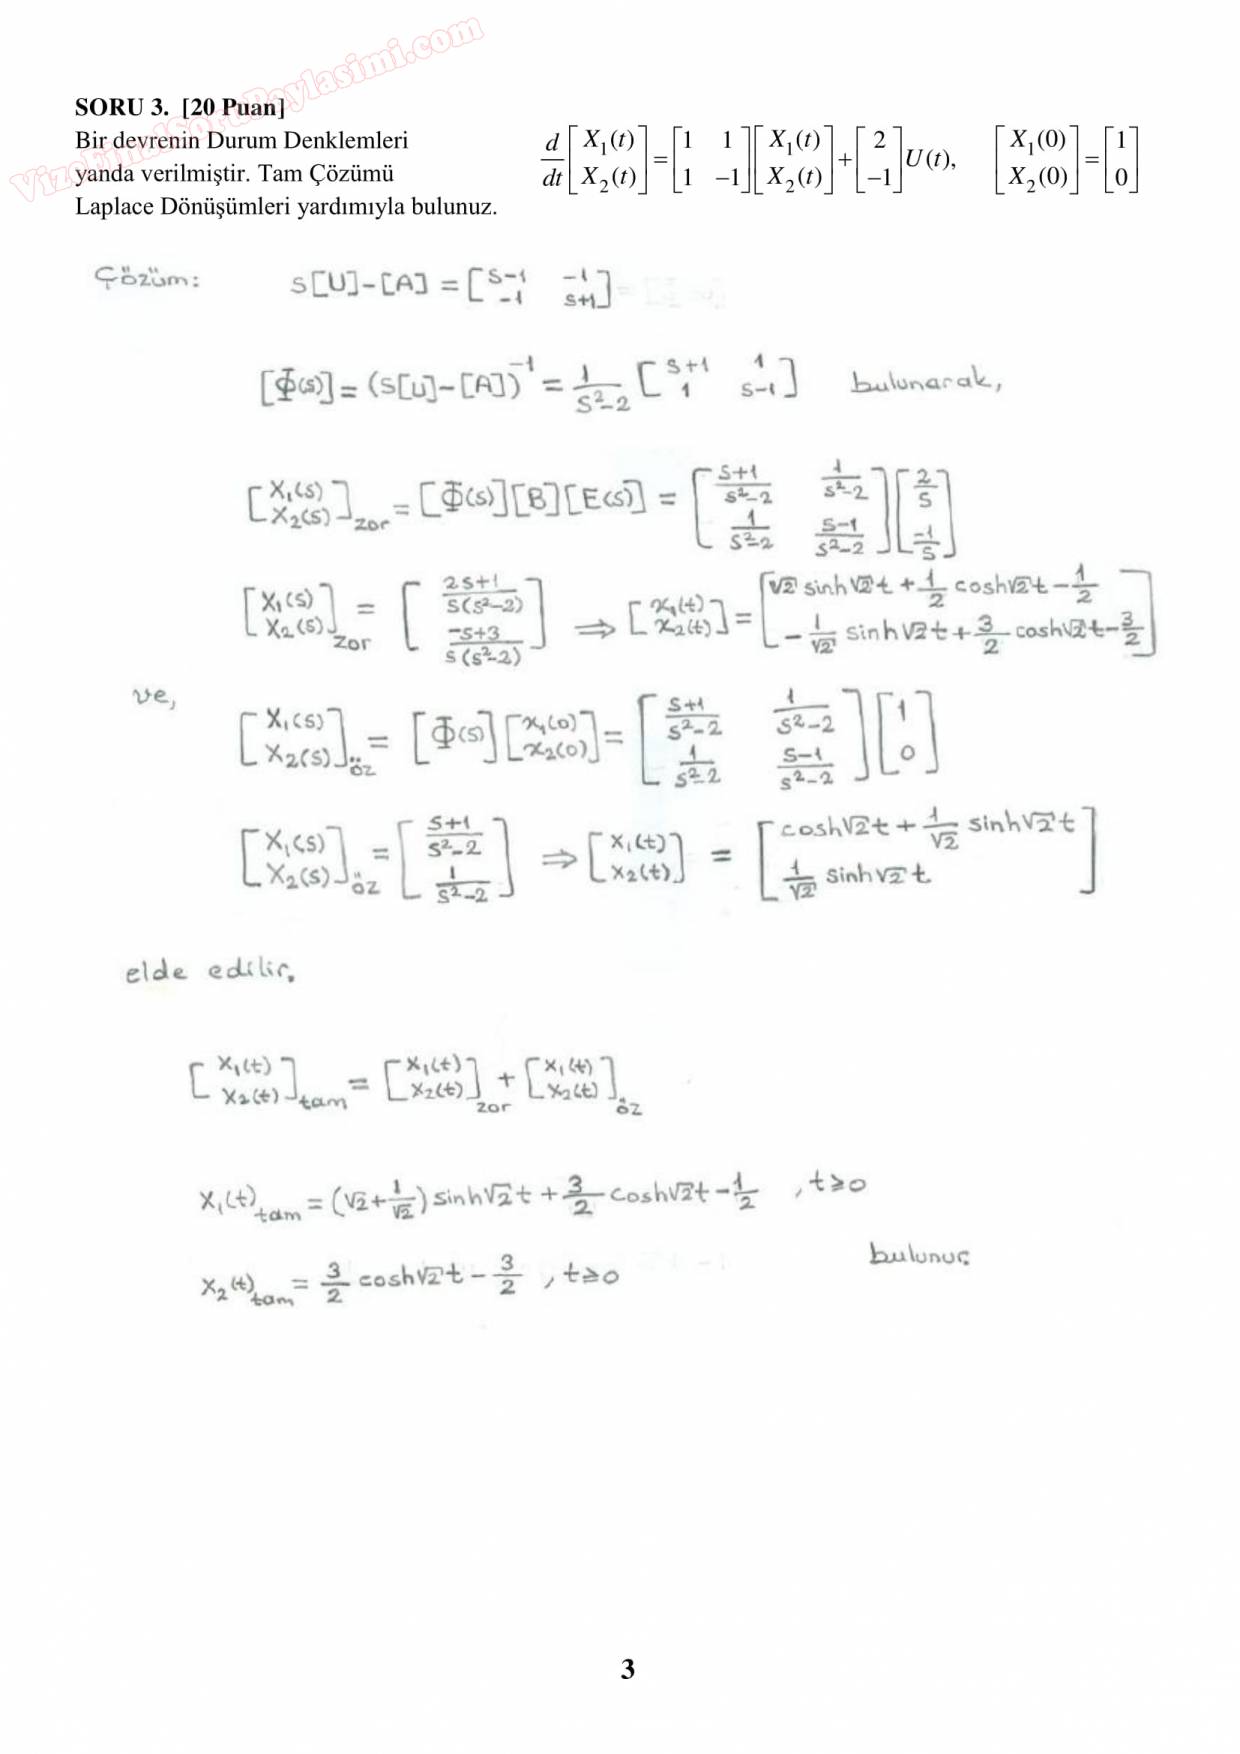 VizeFinalsoruPaylasimi.com
SORU 3. [20 Puan]
Bir devrenin Durum Denklemleri
yanda verilmiştir. Tam Çözümü
Laplace Dönüşümleri yardımıyla bulunuz.
d/dt [X₁(t); X₂(t)] = [1 1; 1 −1] [X₁(t); X₂(t)] + [2; −1] U(t), [X₁(0); X₂(0)] = [1; 0]
Çözüm: s[U]-[A] = [s-1 -1; -1 s+1]
[Φ(s)] = (s[U]-[A])⁻¹ = 1/(s²-2) [s+1 1; 1 s-1] bulunarak,
[X₁(s); X₂(s)]zor = [Φ(s)][B][E(s)] = [(s+1)/(s²-2) 1/(s²-2); 1/(s²-2) (s-1)/(s²-2)] [2/s; -1/s]
[X₁(s); X₂(s)]zor = [(2s+1)/(s(s²-2)); (-s+3)/(s(s²-2))] ⇒ [x₁(t); x₂(t)] = [√2 sinh√2t + 1/2 cosh√2t - 1/2; - 1/√2 sinh√2t + 3/2 cosh√2t - 3/2]
ve,
[X₁(s); X₂(s)]öz = [Φ(s)] [x₁(0); x₂(0)] = [(s+1)/(s²-2) 1/(s²-2); 1/(s²-2) (s-1)/(s²-2)] [1; 0]
[X₁(s); X₂(s)]öz = [(s+1)/(s²-2); 1/(s²-2)] ⇒ [x₁(t); x₂(t)] = [cosh√2t + 1/√2 sinh√2t; 1/√2 sinh√2t]
elde edilir.
[x₁(t); x₂(t)]tam = [x₁(t); x₂(t)]zor + [x₁(t); x₂(t)]öz
x₁(t)tam = (√2 + 1/√2) sinh√2t + 3/2 cosh√2t - 1/2 , t≥0
bulunur.
x₂(t)tam = 3/2 cosh√2t - 3/2 , t≥0
3